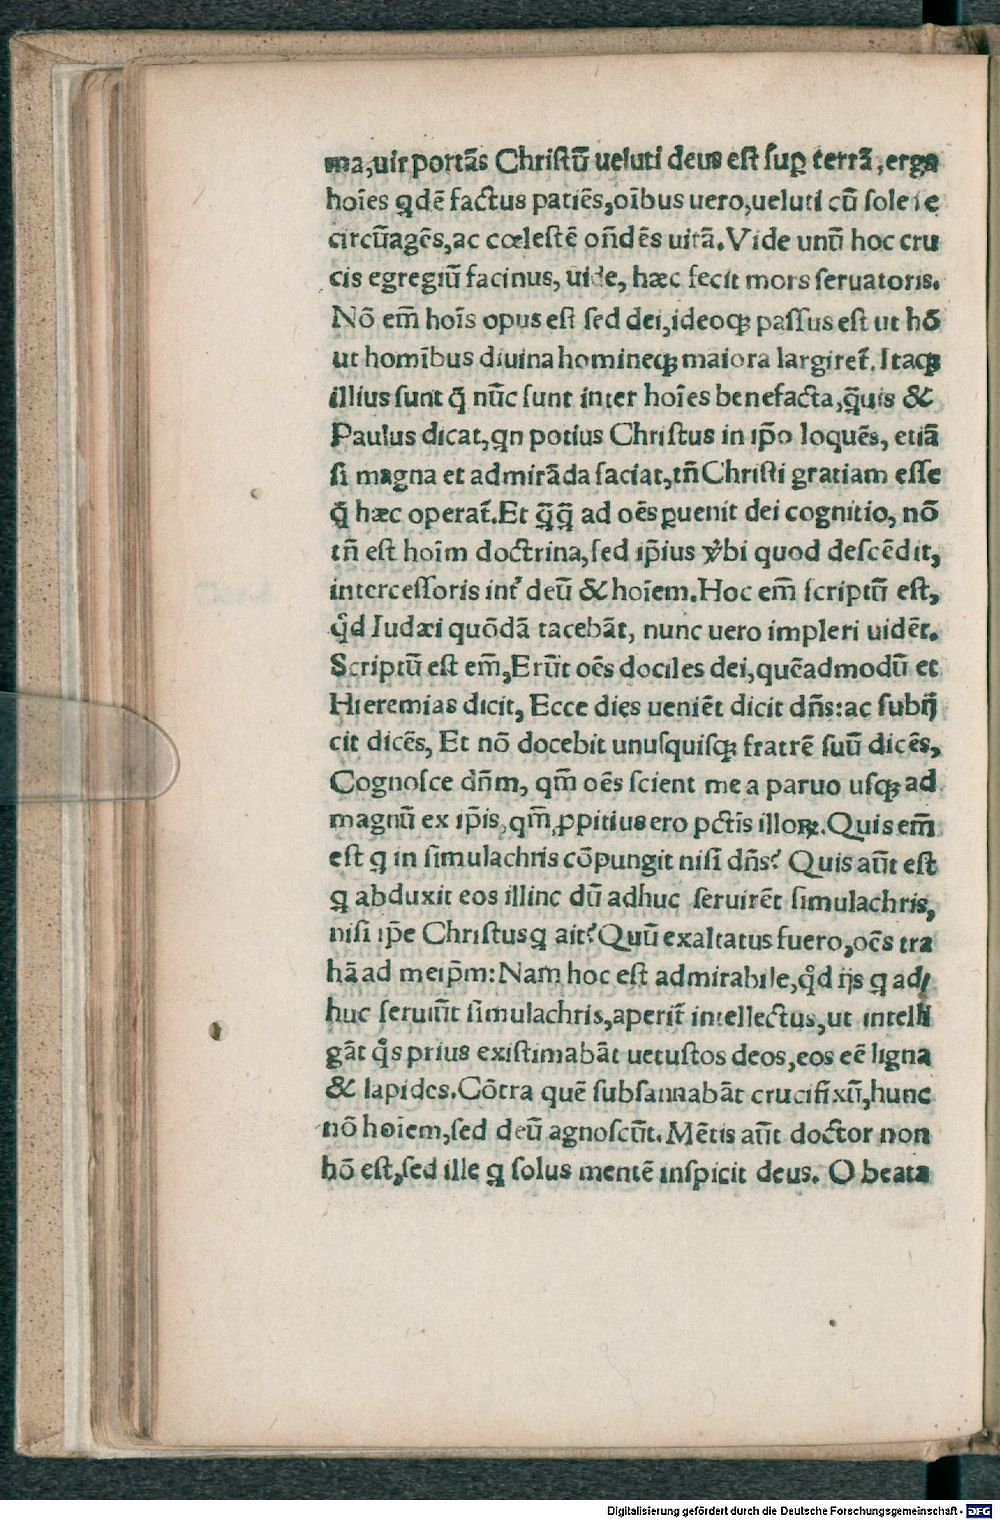 ma,uir portãs Christũ ueluti deus est suꝑ terrã,erga
hoĩes qdẽ factus patiẽs,oĩbus uero,ueluti cũ sole ie
circũagẽs,ac cœlestẽ oñdẽs uitã.Vide unũ hoc cru
cis egregiũ facinus, uide, hæc fecit mors seruatoris.
Nõ em̃ hoĩs opus est sed dei,ideoq; passus est ut hõ
ut homĩbus diuina homineq; maiora largiret̃.Itaq;
illius sunt q̃ nũc sunt inter hoĩes benefacta,q̃uis &
Paulus dicat,qn potius Christus in ip̃o loquẽs, etiã
si magna et admirãda faciat,tñ Christi gratiam esse
q̃ hæc operat̃.Et q̃q̃ ad oẽs ꝑuenit dei cognitio, nõ
tñ est hoĩm doctrina,sed ip̃ius ỹbi quod descẽdit,
intercessoris int̃ deũ & hoĩem.Hoc em̃ scriptũ est,
qd̃ Iudæi quõdã tacebãt, nunc uero impleri uidẽt.
Scriptũ est em̃,Erũt oẽs dociles dei,quẽadmodũ et
Hieremias dicit, Ecce dies ueniẽt dicit dñs:ac subij
cit dicẽs, Et nõ docebit unusquisq; fratrẽ suũ dicẽs,
Cognosce dñm, qm̃ oẽs scient me a paruo usq; ad
magnũ ex ip̃is,qm̃ ꝓpitius ero pctĩs illoꝝ.Quis em̃
est q in simulachris cõpungit nisi dñs? Quis aũt est
q abduxit eos illinc dũ adhuc seruirẽt simulachris,
nisi ip̃e Christus q ait?Quũ exaltatus fuero,oẽs tra
hã ad meip̃m:Nam hoc est admirabile,qd̃ ijs q ad/
huc seruiũt simulachris,aperit̃ intellectus,ut intelli
gãt qs̃ prius existimabãt uetustos deos,eos eẽ ligna
& lapides.Cõtra quẽ subsannabãt crucifixũ,hunc
nõ hoiem,sed deũ agnoscũt.Mẽtis aũt doctor non
hõ est,sed ille q solus mentẽ inspicit deus. O beata
Digitalisierung gefördert durch die Deutsche Forschungsgemeinschaft - DFG